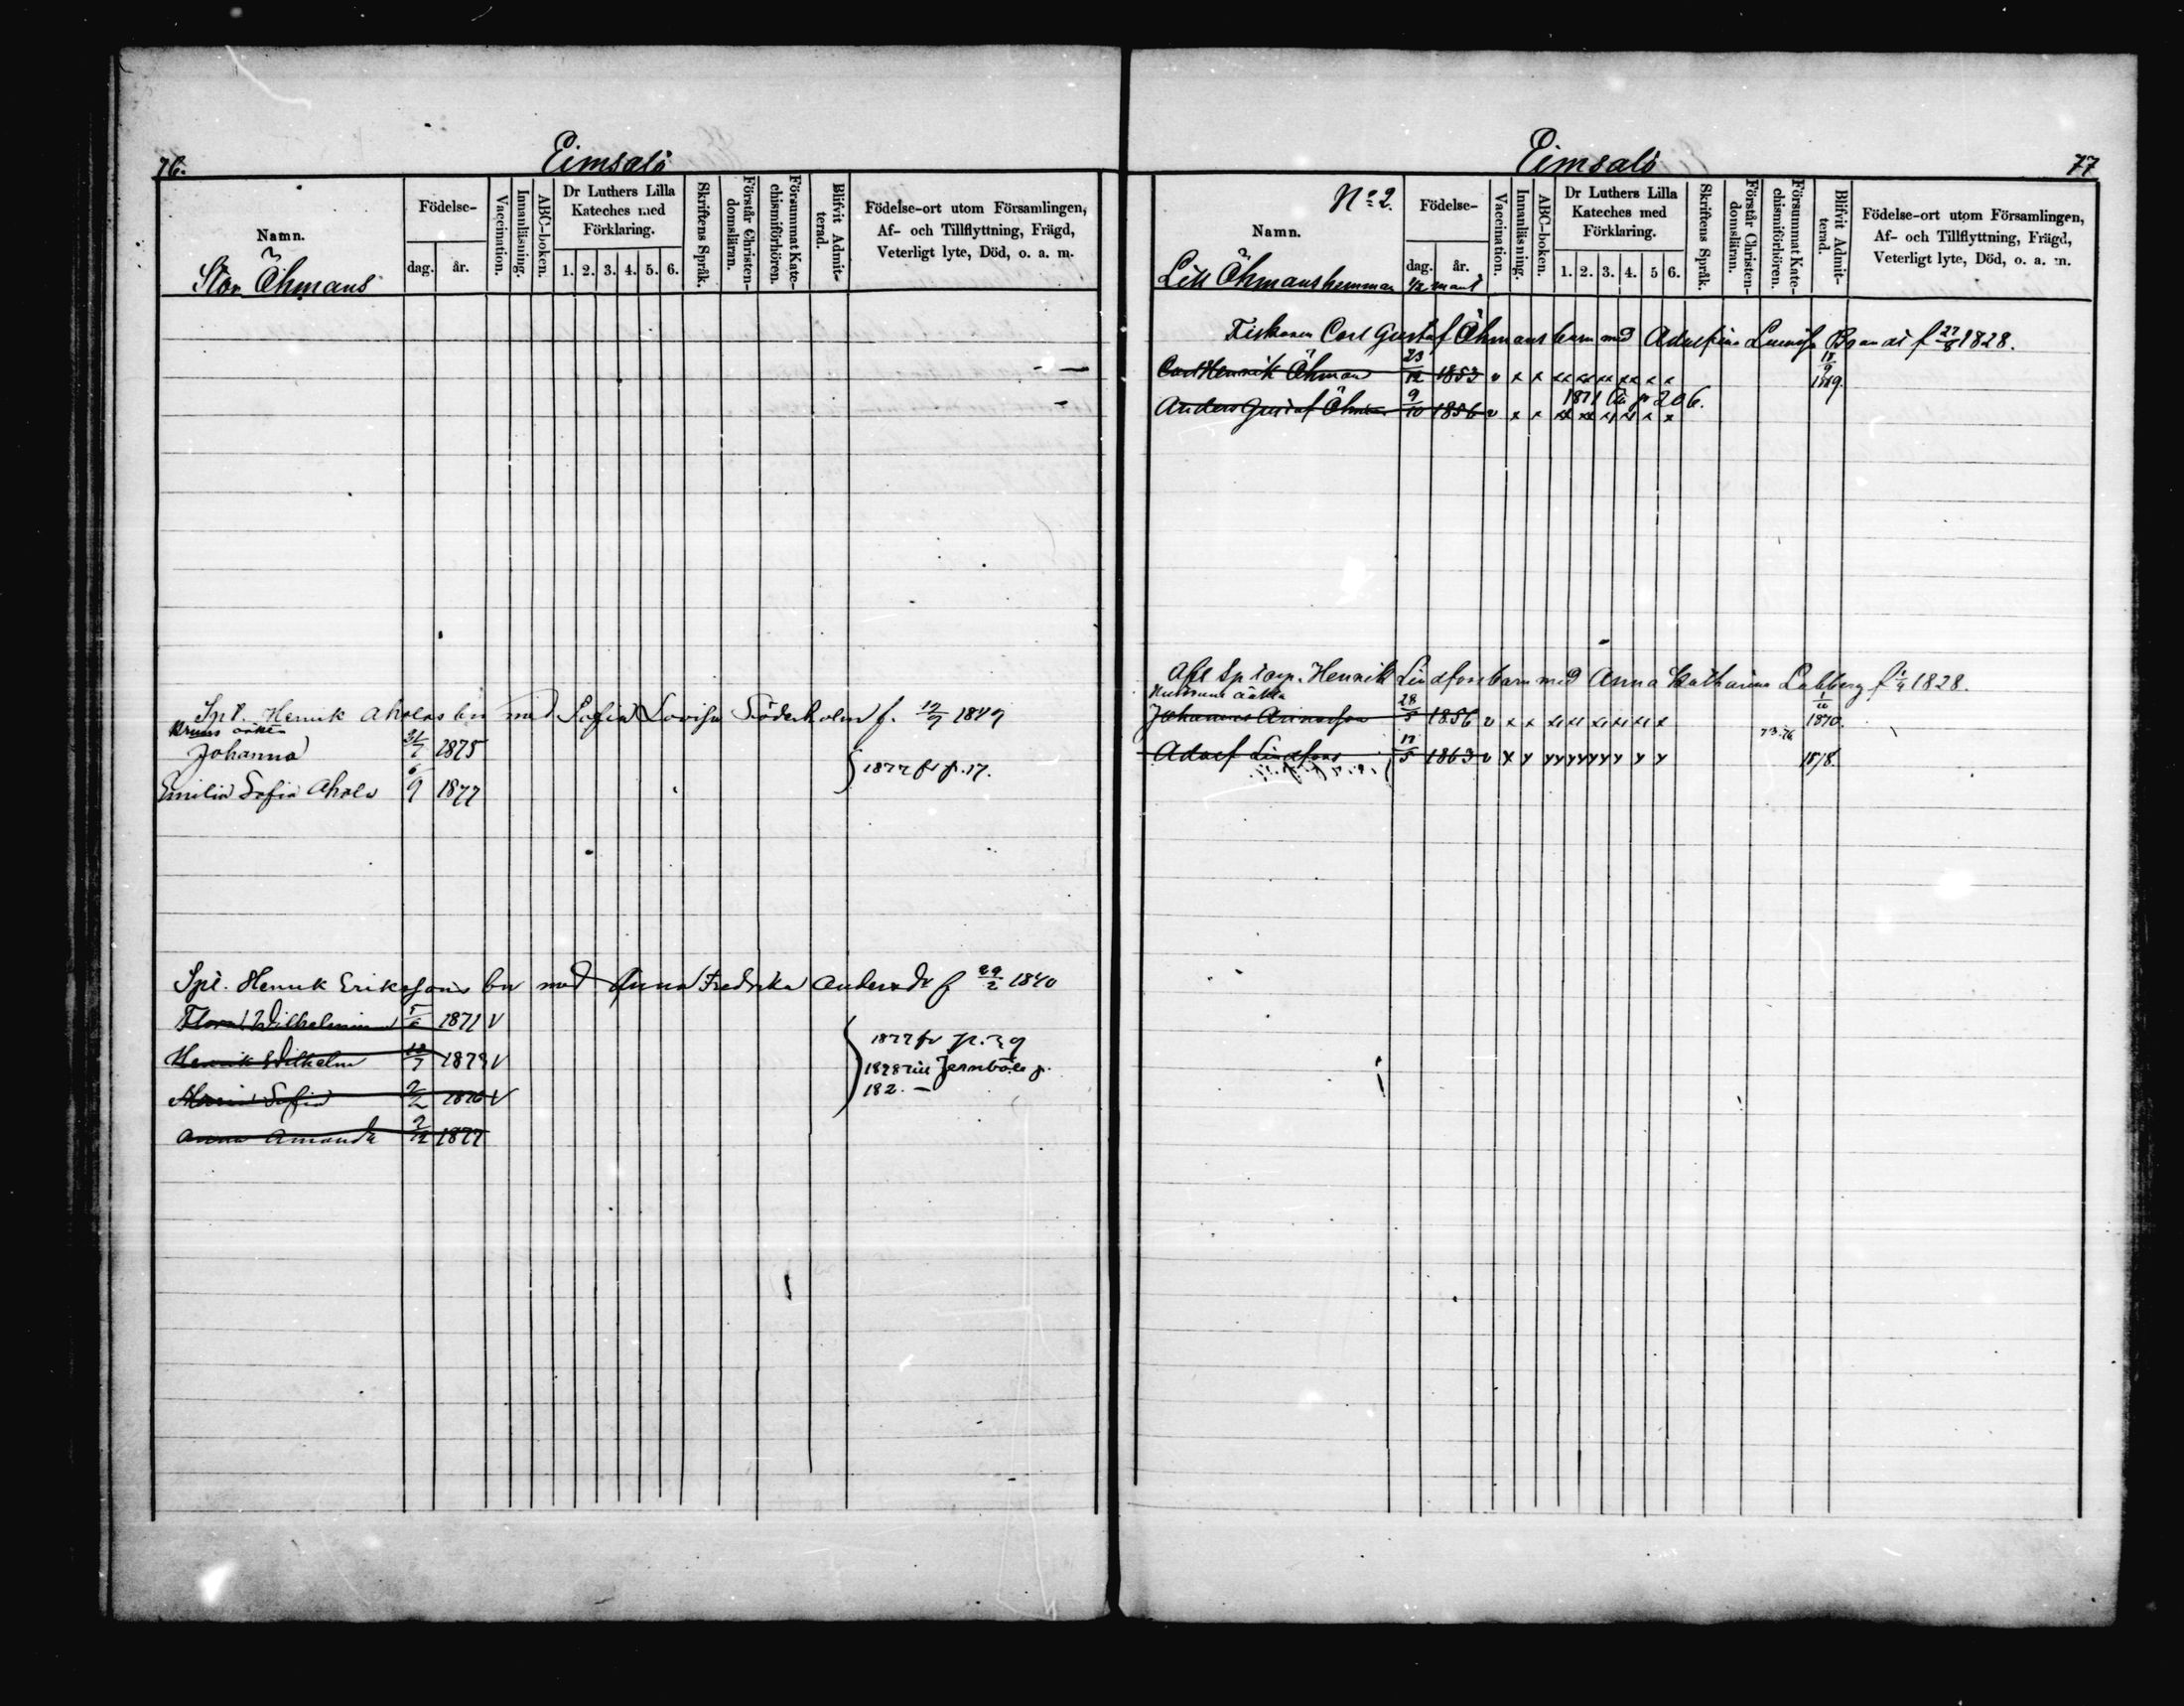 76.
Eimsalö
Namn.
Födelse-
dag.
år.
Vaccination.
Innanläsning.
ABC-boken.
Dr Luthers Lilla
Kateches med
Förklaring.
1. 2. 3. 4. 5. 6.
Skriftens Språk.
Förstår Christen-
domsläran.
Försummat Kate-
chismiförhören.
Blifvit Admit-
terad.
Födelse-ort utom Församlingen,
Af- och Tillflyttning, Frägd,
Veterligt lyte, Död, o. a. m.
Stor Öhmans
Henrik Aholas bn med Sofia Lovisa Söderholm f. 19/9 1849
Johanna 31/7 1875
1877 fr p. 17.
Emilia Sofia Ahola 6/9 1877
Henrik Erikssons bn med Anna Fredrika Andersdr f 29/2 1840
Flora Wilhelmina 5/6 1871 v
1877 fr p. 39
Henrik Wilhelm 10/7 1873 v
1878 till Jernböle p.
Maria Sofia 2/2 1876 v
182. —
Anna Amanda 2/12 1877
Eimsalö
77
No 2.
Namn.
Födelse-
dag.
år.
Vaccination.
Innanläsning.
ABC-boken.
Dr Luthers Lilla
Kateches med
Förklaring.
1. 2. 3. 4. 5 6.
Skriftens Språk.
Förstår Christen-
domsläran.
Försummat Kate-
chismiförhören.
Blifvit Admit-
terad.
Födelse-ort utom Församlingen,
Af- och Tillflyttning, Frägd,
Veterligt lyte, Död, o. a. m.
Lill Öhmans hemman 1/2 mant
Fiskaren Carl Gustaf Öhmans barn med Lovisa f 27/8 1828.
Carl Henrik Öhman 23/12 1853 v x x xx xx xx xx x x
1871 p 206.
Anders Gustaf Öhman 9/10 1856 v x x xx xx xx xx x x
Afl Sp Henrik Lindfors barn med Anna Katharina f 1828.
Johannes 28/5 1856 v x x xx xx xx xx x x 1870.
73.76
Adolf Lindfors 17/5 1863 v 1878.